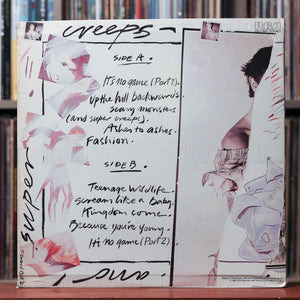 creeps
RCA
SIDE A.
It's no game (Part 1).
Up the hill backwards.
Scary monsters
(and super creeps).
Ashes to ashes.
Fashion.
SIDE B.
Teenage Wildlife.
Scream like a baby.
Kingdom come.
Because you're young.
It's no game (Part 2)
super
and